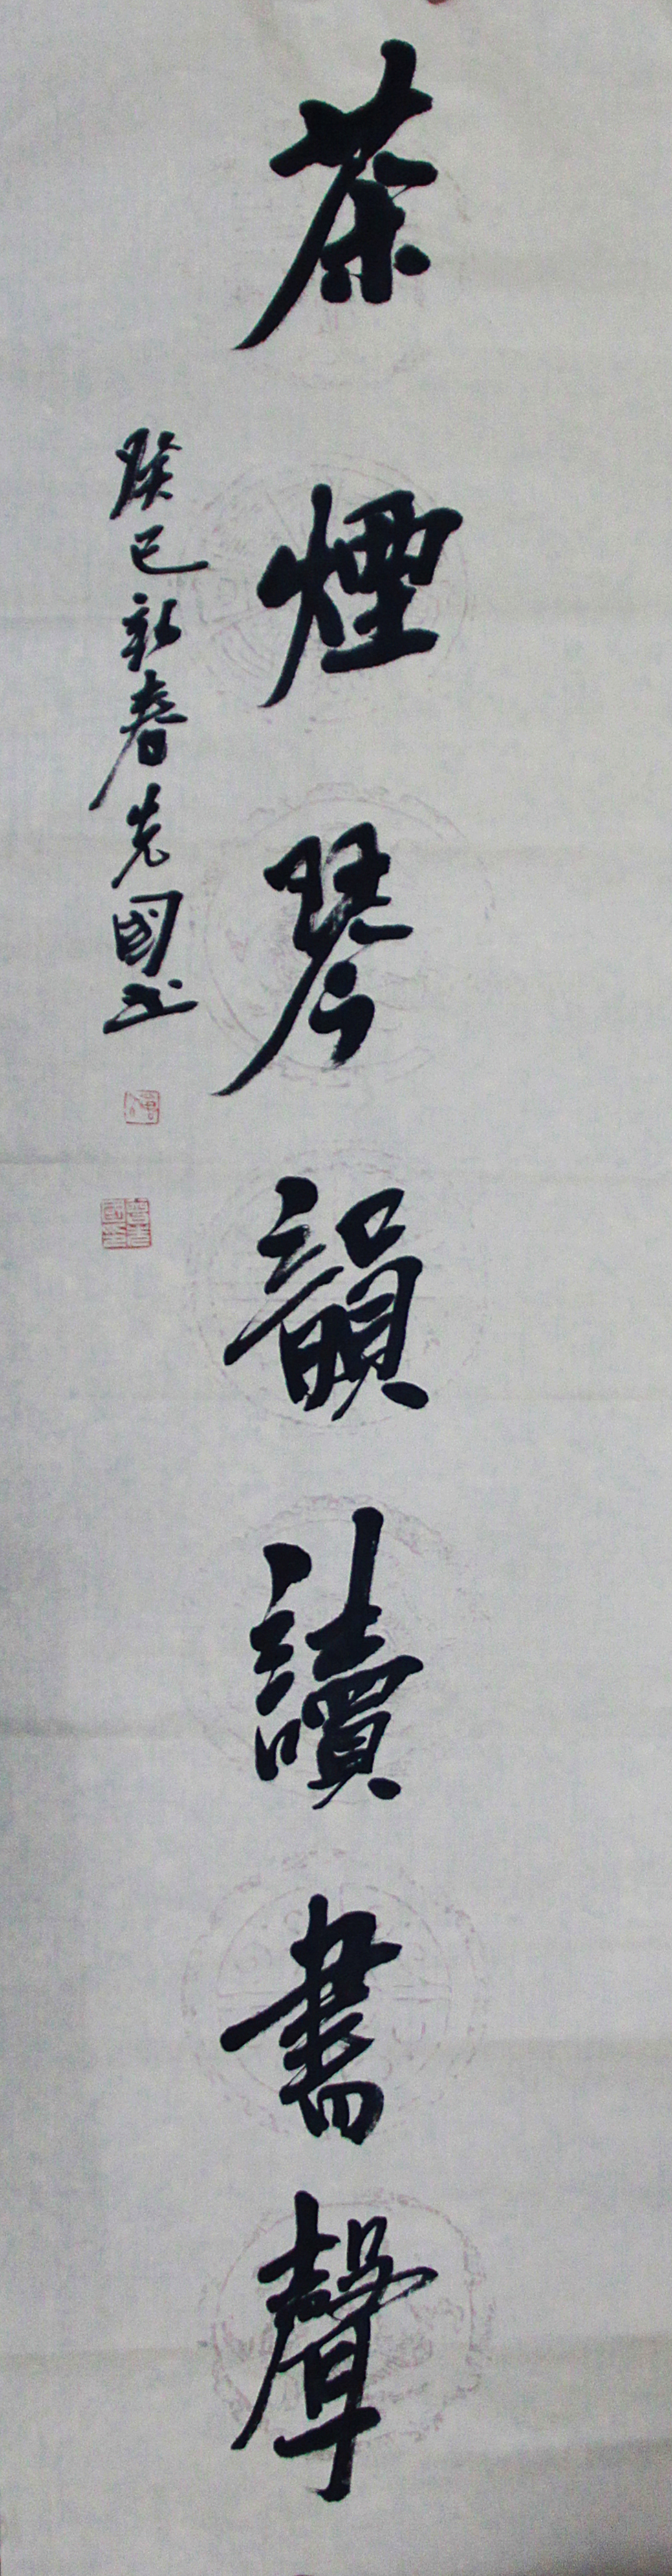 茶煙琴韻讀書聲
癸巳新春先國書